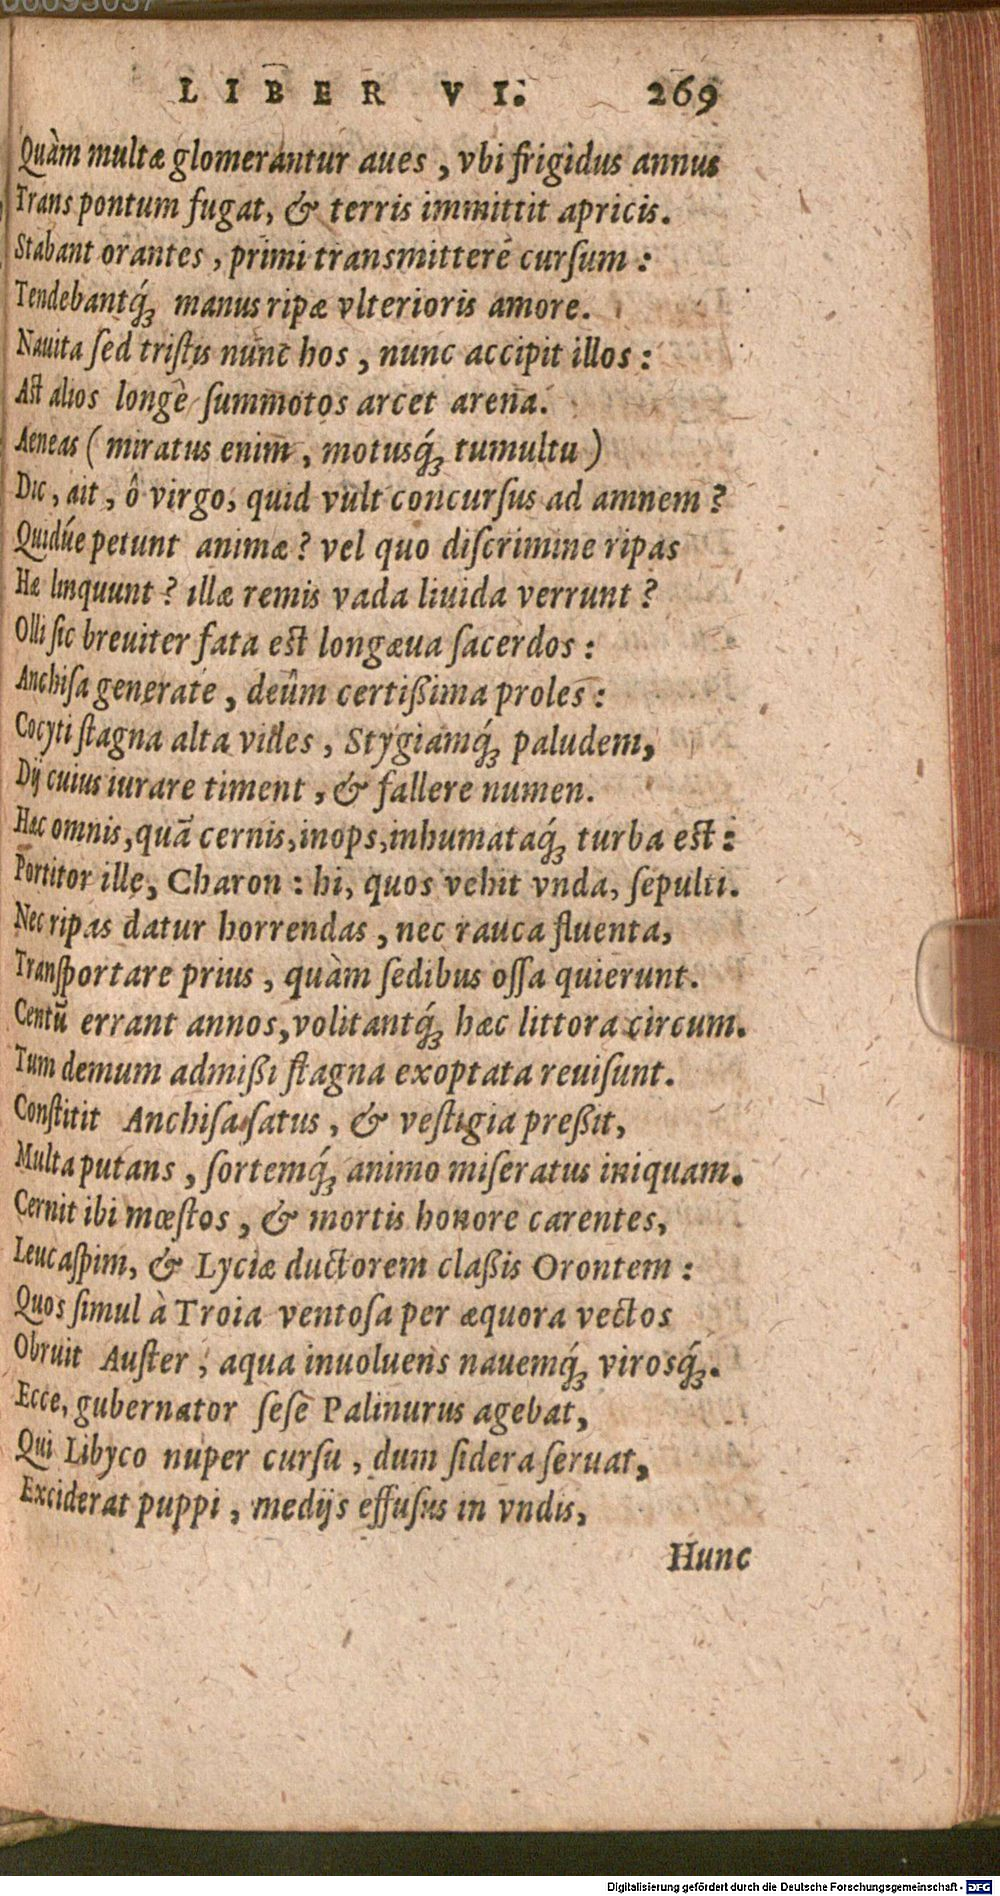 LIBER VI. 269
Quàm multæ glomerantur aues, vbi frigidus annus
Trans pontum fugat, & terris immittit apricis.
Stabant orantes, primi transmittere cursum:
Tendebantq́; manus ripæ vlterioris amore.
Nauita sed tristis nunc hos, nunc accipit illos:
Ast alios longè summotos arcet arena.
Aeneas (miratus enim, motusq́; tumultu)
Dic, ait, ô virgo, quid vult concursus ad amnem?
Quidúe petunt animæ? vel quo discrimine ripas
Hæ linquunt? illæ remis vada liuida verrunt?
Olli sic breuiter fata est longæua sacerdos:
Anchisa generate, deûm certißima proles:
Cocyti stagna alta vides, Stygiamq́; paludem,
Dij cuius iurare timent, & fallere numen.
Hæc omnis, quã cernis, inops, inhumataq́; turba est:
Portitor ille, Charon: hi, quos vehit vnda, sepulti.
Nec ripas datur horrendas, nec rauca fluenta,
Transportare prius, quàm sedibus ossa quierunt.
Centũ errant annos, volitantq́; hæc littora circum.
Tum demum admißi stagna exoptata reuisunt.
Constitit Anchisa satus, & vestigia preßit,
Multa putans, sortemq́; animo miseratus iniquam.
Cernit ibi mœstos, & mortis honore carentes,
Leucaspim, & Lyciæ ductorem claßis Orontem:
Quos simul à Troia ventosa per æquora vectos
Obruit Auster, aqua inuoluens nauemq́; virosq́;.
Ecce, gubernator sese Palinurus agebat,
Qui Libyco nuper cursu, dum sidera seruat,
Exciderat puppi, medijs effusus in vndis,
Hunc
Digitalisierung gefördert durch die Deutsche Forschungsgemeinschaft - DFG